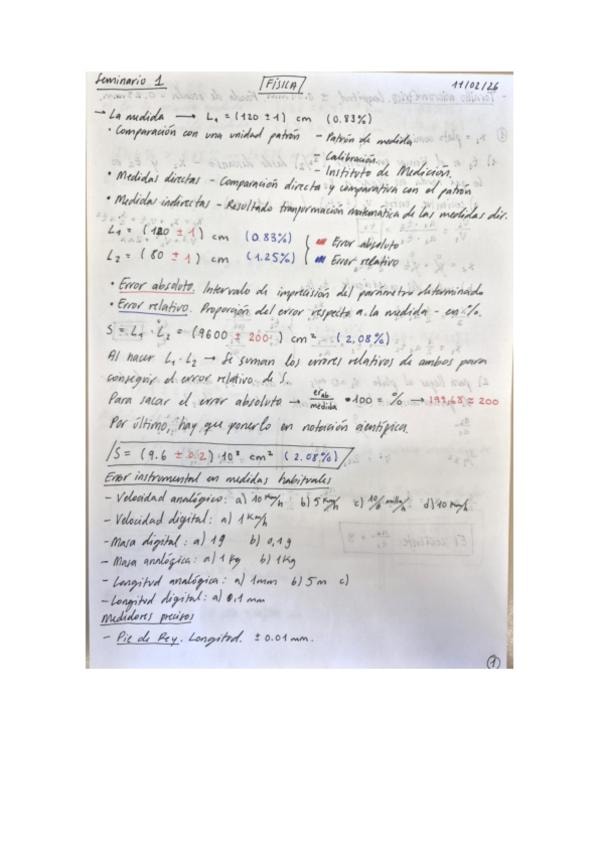 Seminario 1 FÍSICA 11/02/26
→ La medida → L₁ = (120 ± 1) cm (0.83%)
• Comparación con una unidad patrón - Patrón de medida
- Calibración.
- Instituto de Medición.
• Medidas directas - Comparación directa y comparativa con el patrón
• Medidas indirectas - Resultado tranformación matematica de las medidas dir.
L₁ = (120 ± 1) cm (0.83%) Error absoluto
L₂ = (80 ± 1) cm (1.25%) Error relativo
• Error absoluto. Intervalo de imprecisión del parámetro determinado
• Error relativo. Proporción del error respecto a la medida - en %.
S = L₁ · L₂ = (9600 ± 200) cm² (2,08%)
Al hacer L₁ · L₂ → Se suman los errores relativos de ambos para
conseguir el error relativo de S.
Para sacar el error absoluto → er ab/medida • 100 = % → 199,68 ≈ 200
Por último, hay que ponerlo en notación científica.
S = (9.6 ± 0.2) 10³ cm² (2.08%)
Error instrumental en medidas habituales
- Velocidad analógico: a) 10 Km/h b) 5 Km/h c) 10 millas/h d) 10 Km/h
- Velocidad digital: a) 1 Km/h
- Masa digital: a) 1g b) 0,1g
- Masa analógica: a) 1 Kg b) 1 Kg
- Longitud analógica: a) 1mm b) 5 m c)
- Longitud digital: a) 0.1 mm
Medidores precisos
- Pie de Rey. Longitud. ± 0.01 mm.
1